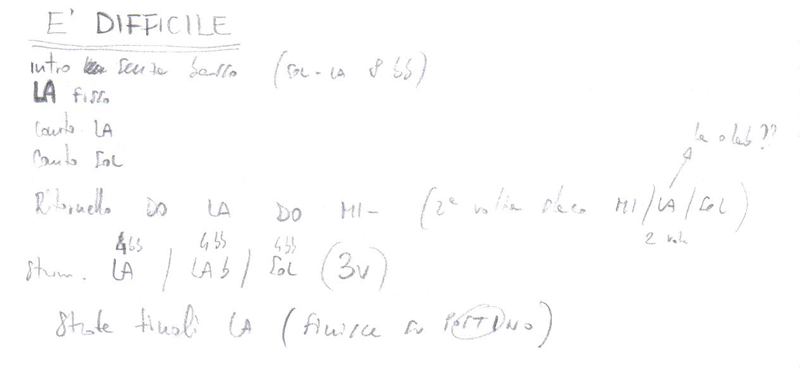 E' DIFFICILE
intro senza basso (SOL-LA 8 bb)
LA fisso
Canto LA
Canto SOL
la o lab??
Ritornello DO LA DO MI- (2ª volta MI/LA/SOL)
2 volte
4bb 4bb 4bb
Strum. LA / LAb / SOL (3v)
Strofe finali LA (finisce su)